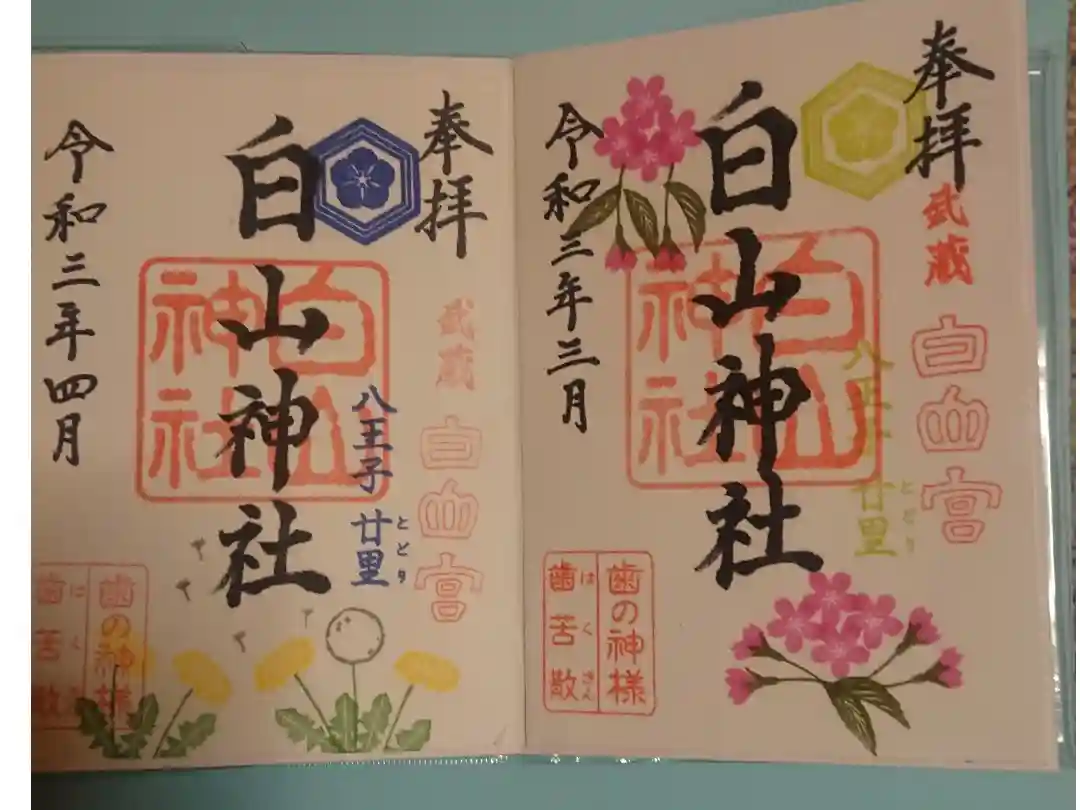 奉拝
武蔵
白山宮
白山神社
白山神社
八王子 廿里
とどり
歯の神様
歯苦散
はくさん
令和三年三月
奉拝
武蔵
白山宮
白山神社
白山神社
八王子 廿里
とどり
歯の神様
歯苦散
はくさん
令和三年四月